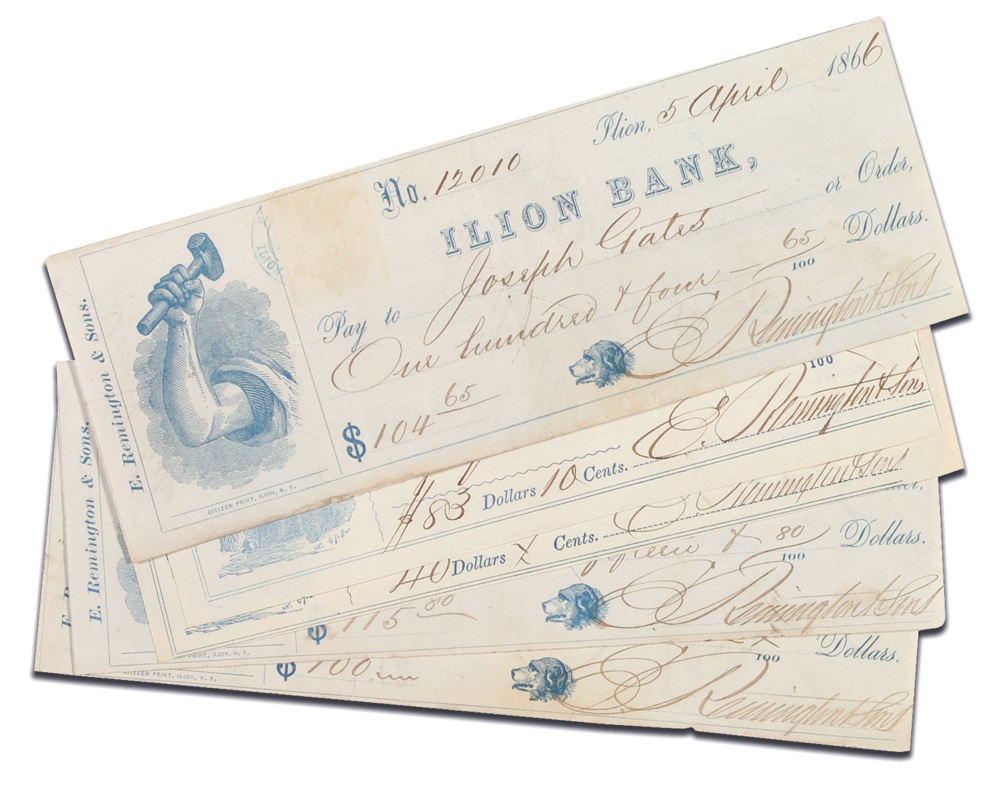 E. Remington & Sons.
No. 12010
Ilion, 5 April 1866
ILION BANK,
Pay to Joseph Gates or Order,
One hundred & four 65/100 Dollars.
$ 104 65
E Remington & Sons
CITIZEN PRINT, ILION, N. Y.
100
$ 83 Dollars 10 Cents. E. Remington & Sons
N.Y.
40 Dollars X Cents. Remington & Sons
E. Remington & Sons.
fifteen & 80/100 Dollars.
$ 115 80
E Remington & Sons
PRINT, ILION, N. Y.
X/100 Dollars.
$ 100.
E Remington & Sons
CITIZEN PRINT, ILION, N. Y.